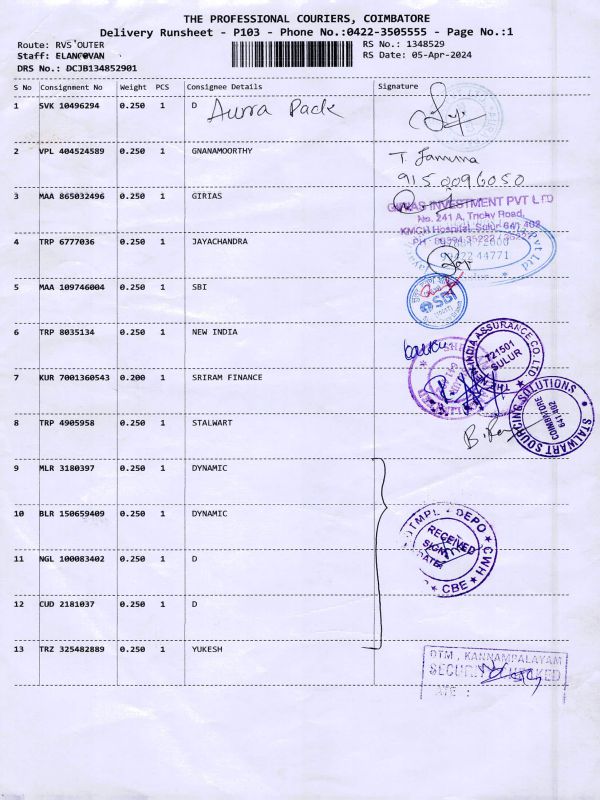 THE PROFESSIONAL COURIERS, COIMBATORE
Delivery Runsheet - P103 - Phone No.:0422-3505555 - Page No.:1
Route: RVS OUTER
RS No.: 1348529
Staff: ELANGOVAN
RS Date: 05-Apr-2024
DRS No.: DCJB134852901
S No Consignment No Weight PCS Consignee Details Signature
1 SVK 10496294 0.250 1 D Aurra Pack
2 VPL 404524589 0.250 1 GNANAMOORTHY T. Jamuna
9150096050
3 MAA 865032496 0.250 1 GIRIAS
INVESTMENT PVT LTD
No. 241 A, Trichy Road,
KMCH Hospital, Sulur 641 402
4 TRP 6777036 0.250 1 JAYACHANDRA
44771
5 MAA 109746004 0.250 1 SBI
SBI
6 TRP 8035134 0.250 1 NEW INDIA
THE NEW INDIA ASSURANCE CO. LTD
721501
SULUR
7 KUR 7001360543 0.200 1 SRIRAM FINANCE
8 TRP 4905958 0.250 1 STALWART
STALWART SOURCING SOLUTIONS
COIMBATORE
641 402
9 MLR 3180397 0.250 1 DYNAMIC
10 BLR 150659409 0.250 1 DYNAMIC
DEPO * CWH * CBE *
RECEIVED
SIGN
DATE
11 NGL 100083402 0.250 1 D
12 CUD 2181037 0.250 1 D
13 TRZ 325482889 0.250 1 YUKESH
DTM, KANNAMPALAYAM
SECURITY CHECKED
DATE :